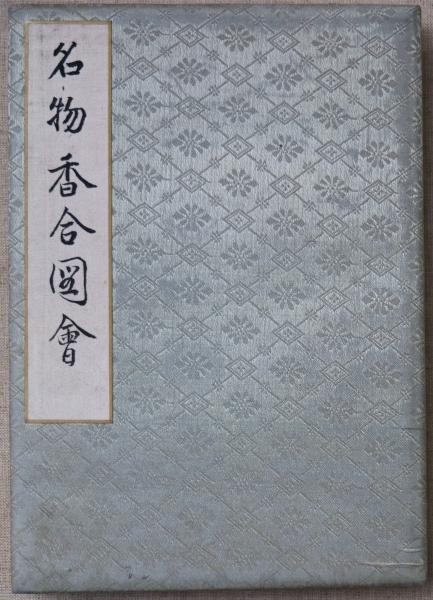 名物香合図會